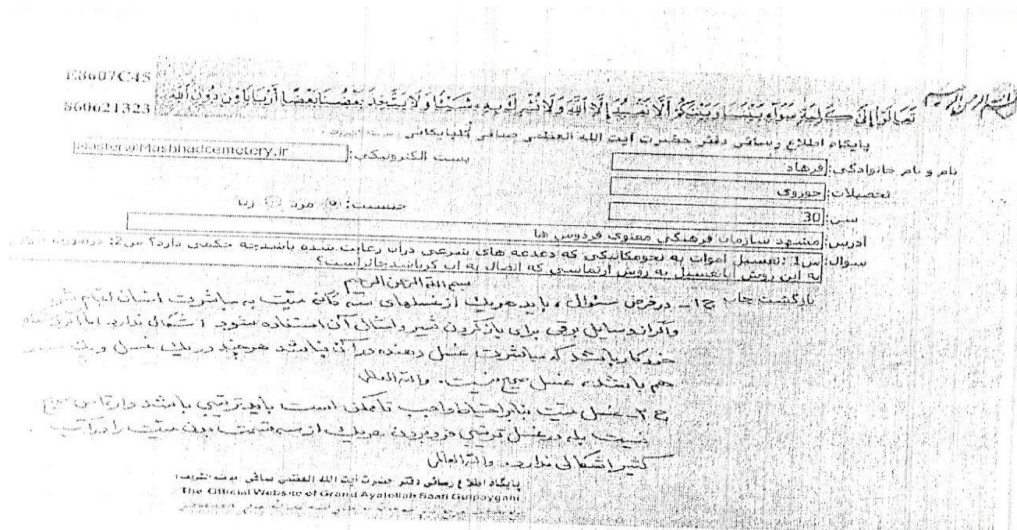 E8607C45
S60621323
تَعَالَوْا إِلَىٰ كَلِمَةٍ سَوَآءٍ بَيْنَنَا وَبَيْنَكُمْ أَلَّا نَعْبُدَ إِلَّا اللَّهَ وَلَا نُشْرِكَ بِهِ شَيْئًا وَلَا يَتَّخِذَ بَعْضُنَا بَعْضًا أَرْبَابًا مِّن دُونِ اللَّهِ
پایگاه اطلاع رسانی دفتر حضرت آیت الله العظمی صافی گلپایگانی
نام و نام خانوادگی: فرهاد پست الکترونیکی: Master@Mashhadcemetery.ir
تحصیلات: حوزوی
سن: 30 جنسیت: مرد زن
آدرس: مشهد سازمان فرهنگی معنوی فردوس ها
سوال: س1: تغسیل اموات به نحو مکانیکی که دغدغه های شرعی دران رعایت شده باشد چه حکمی دارد؟ س2: درصورت
به این روش تغسیل به روش ارتماسی که اتصال به اب کر باشد جائز است؟
بسم الله الرحمن الرحیم
بازگشت چاپ ج۱ـ در فرض سئوال، باید هریک از غسلهای سه گانه میّت به مباشرت انسان انجام شود
و اگر از وسایل برقی برای باز کردن شیر و امثال آن استفاده شود اشکال ندارد اما اگر
خودکار باشد که مباشرت غسل دهنده در آن نباشد هرچند در یک غسل و یک
هم باشد، غسل صحیح نیست. والله العالم
ج۲ـ غسل میّت بنابر احتیاط واجب تا ممکن است باید ترتیبی باشد و ارتماسی صحیح
نیست بله در غسل ترتیبی فرو بردن هریک از سه قسمت بدن میّت را در آب
کثیر اشکالی ندارد. والله العالم
پایگاه اطلاع رسانی دفتر حضرت آیت الله العظمی صافی
The Official Website of Grand Ayatollah Saafi Gulpaygani